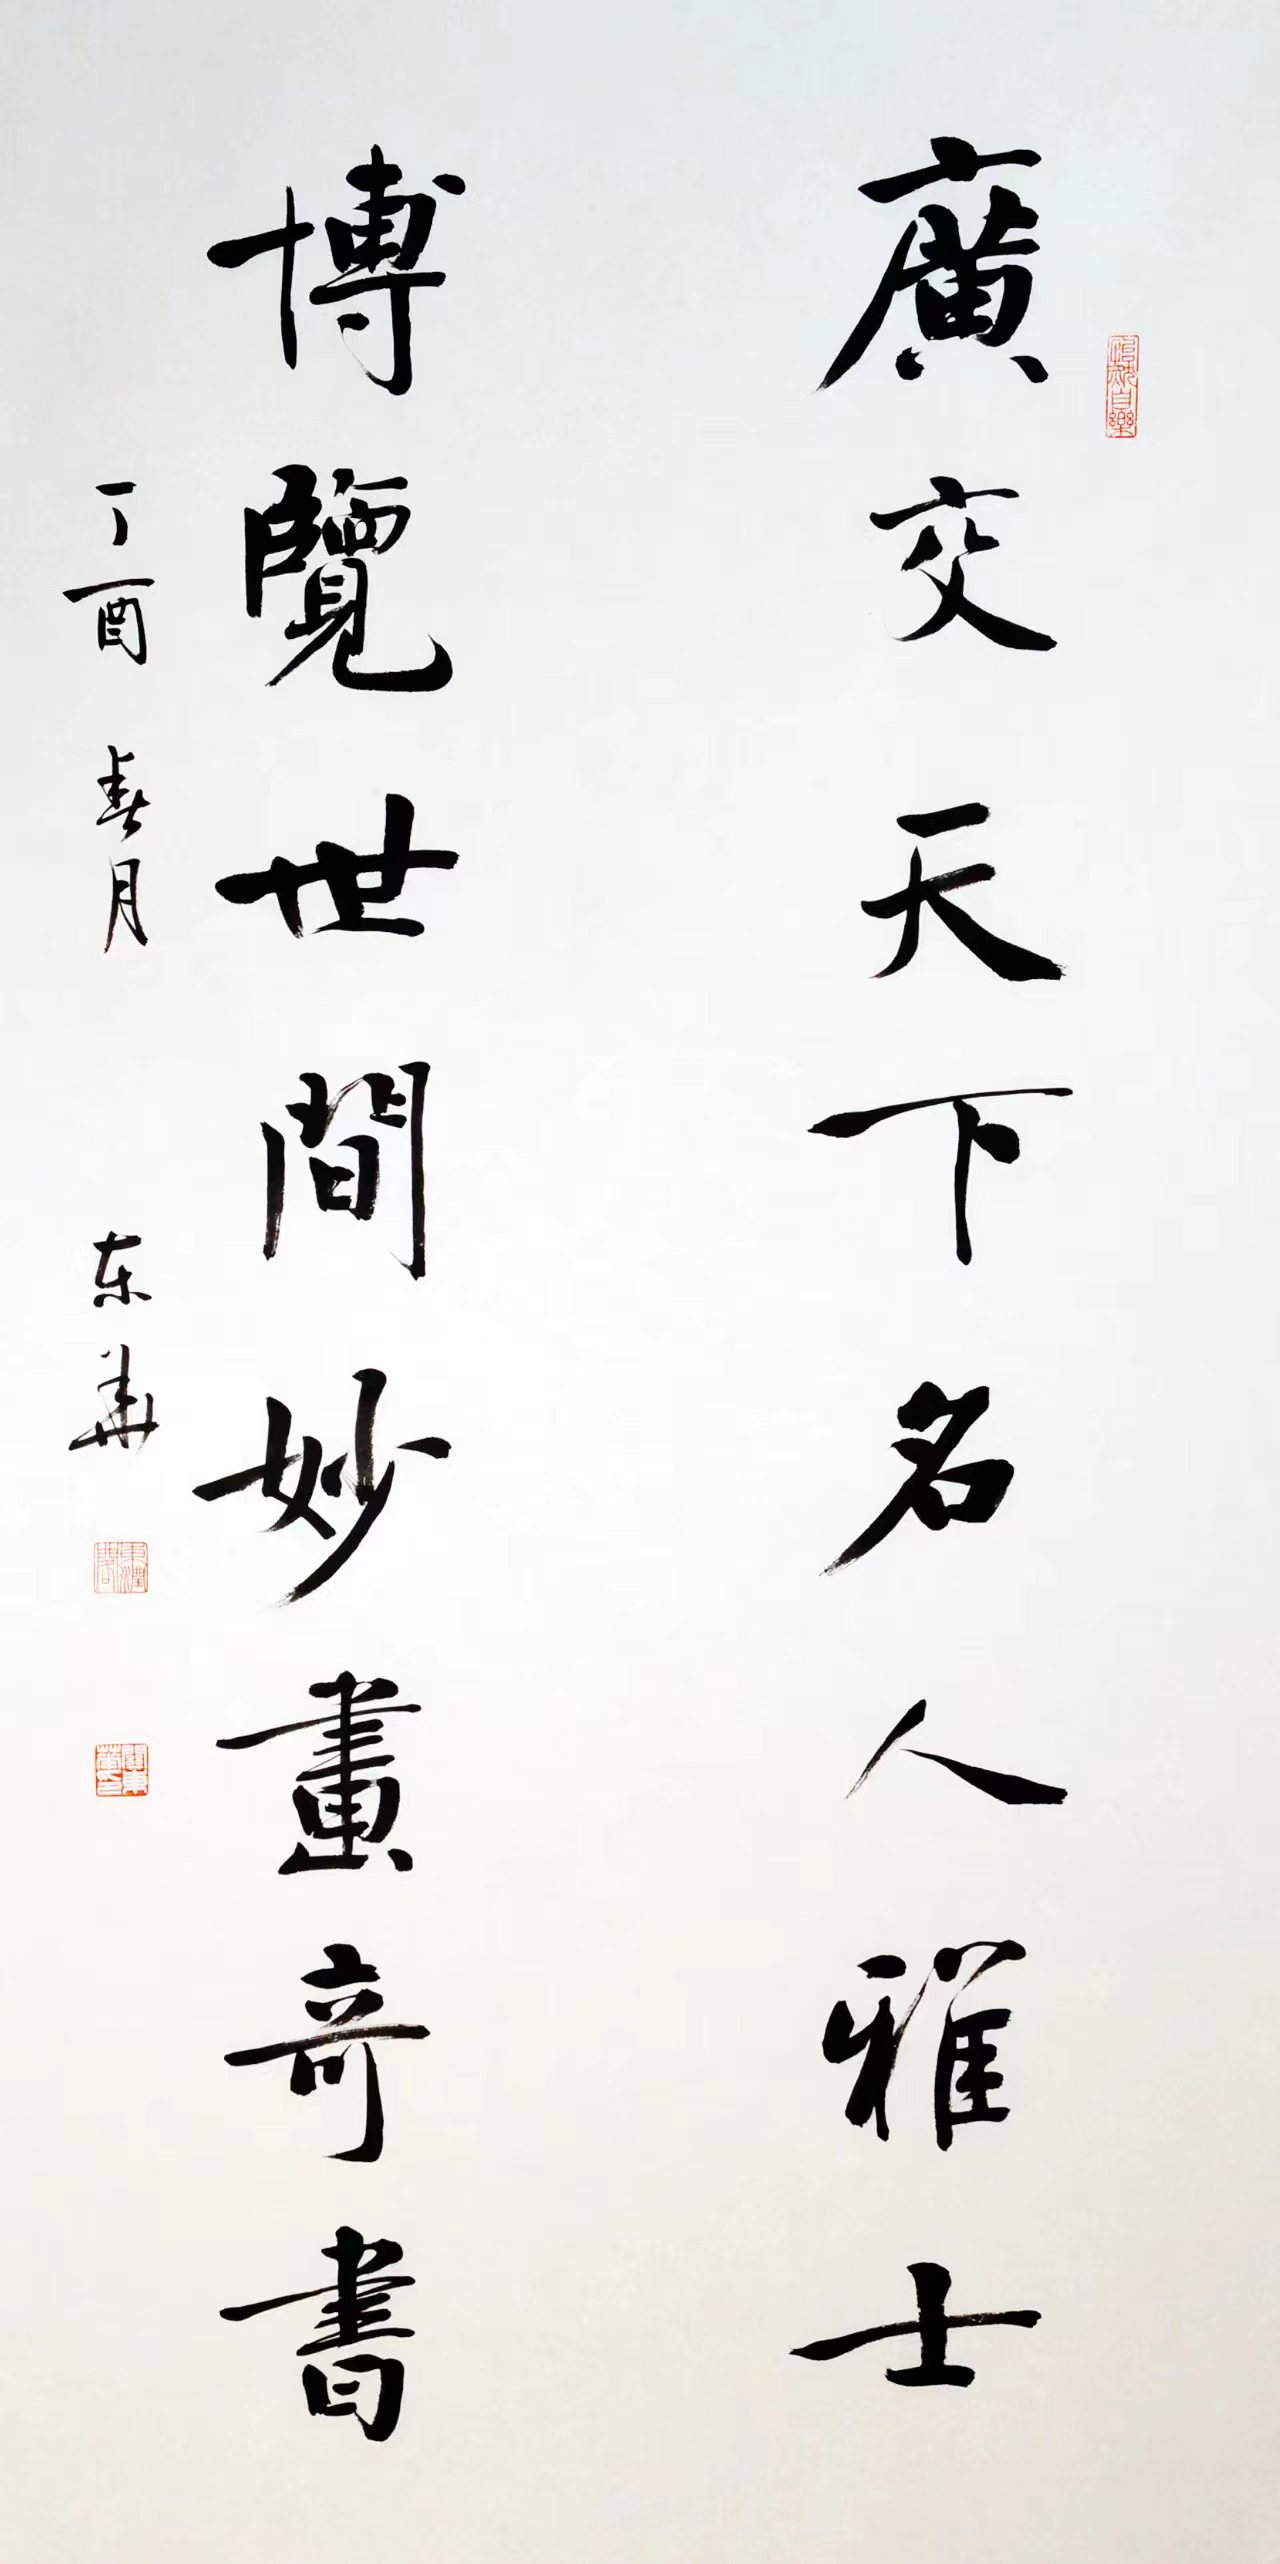 廣交天下名人雅士
博覽世間妙畫奇書
丁酉春月 东華
怡然自樂